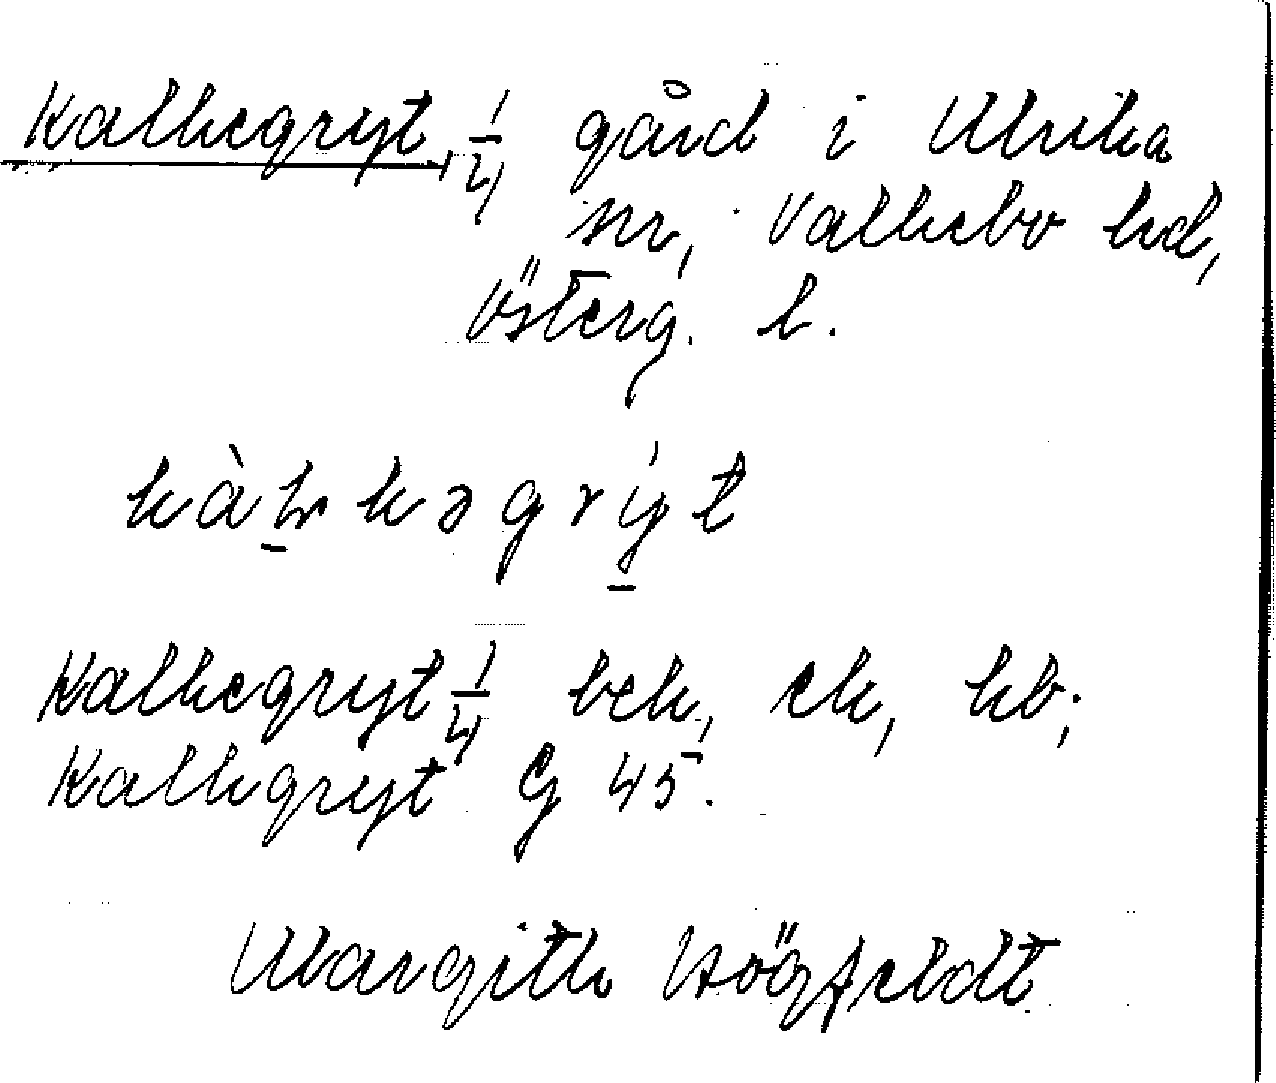 Kalkegryt, 1/4 gård i Ulrika
sn, Valkebo hd,
Österg. l.
kàlkəgrýt
Kalkegryt 1/4 bek, ek, kb;
Kalkgryt G 45.
Margith Högfeldt